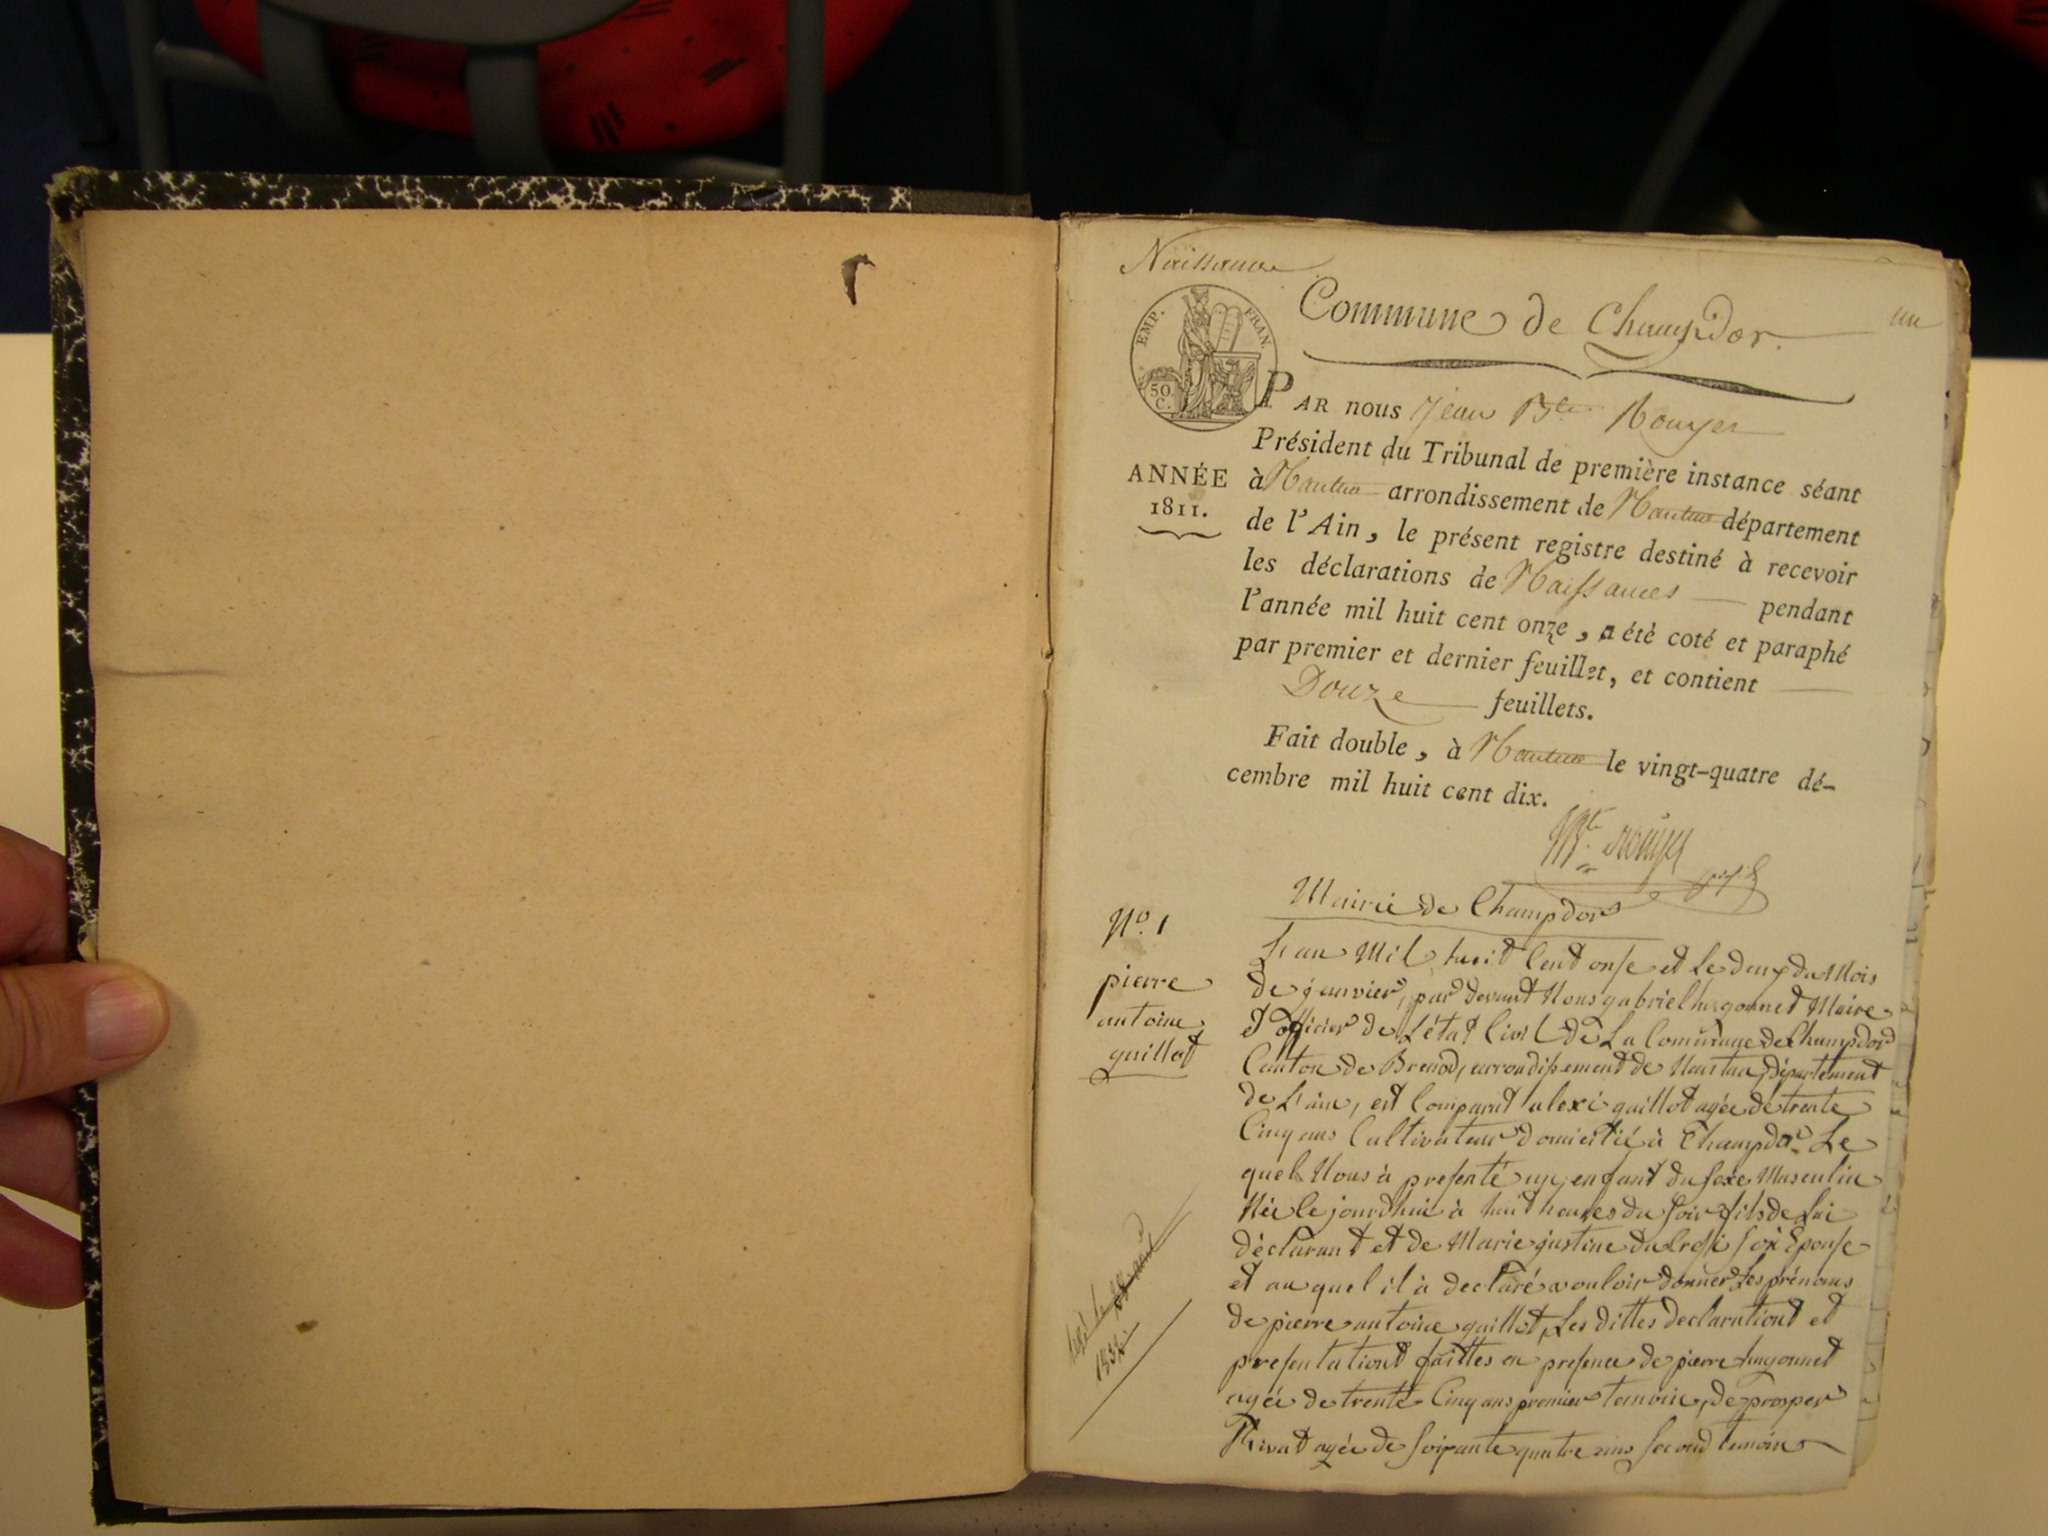 Naissance
Commune de Champdor.
un
EMP. FRAN.
50 C.
PAR nous Jean Bte Rouyer
Président du Tribunal de première instance séant
ANNÉE
1811.
à Nantua arrondissement de Nantua département
de l'Ain, le présent registre destiné à recevoir
les déclarations de Naissances pendant
l'année mil huit cent onze, a été coté et paraphé
par premier et dernier feuillet, et contient
Douze feuillets.
Fait double, à Nantua le vingt-quatre dé-
cembre mil huit cent dix.
Bte Rouyer
Mairie de Champdor
N.o 1
pierre
antoine
guillot
L'an Mil huit Cent onse et Le deux du Mois
de janvier, par devant Nous gabriel hugonnet Maire
et officier de L'état Civil de La Commune de Champdor
Canton de Brenod, arrondissement de Nantua, département
de L'ain, est Comparut alexi guillot agée de trente
Cinq ans Cultivateur domicilié à Champdor Le
quel Nous à presenté un enfant du sexe Masculin
Née le jourdhui à huit heures du soir fils de Lui
déclarant et de Marie justine Ducrest son Epouse
et au quel il à declaré vouloir donner Les prénoms
de pierre antoine guillot, Les dittes declarationt et
presentationt faittes en presence de pierre hugonnet
agée de trente Cinq ans premier temoin, de prosper
Rivat agée de soixante quatre ans second temoin